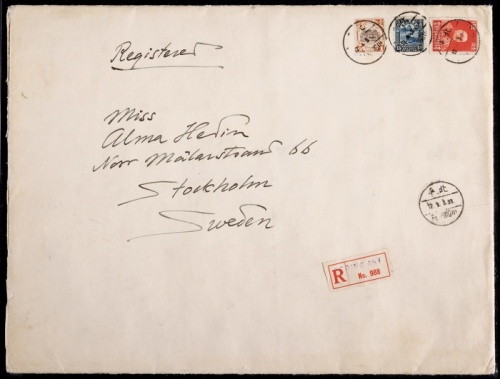 Registered
Miss
Alma Hedin
Norr Mälarstrand 66
Stockholm
Sweden
平北
R
No. 988